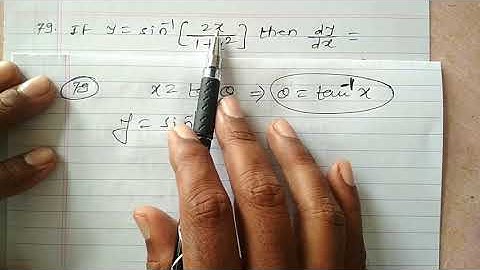 79. If y = sin⁻¹ [2x/1+x²] then dy/dx =
79 x = tan θ ⇒ θ = tan⁻¹ x
y = sin⁻